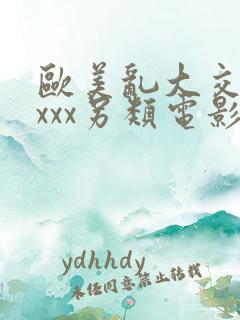 歐美亂大交
xxx另類電影
ydhhdy
未任同意禁止转载